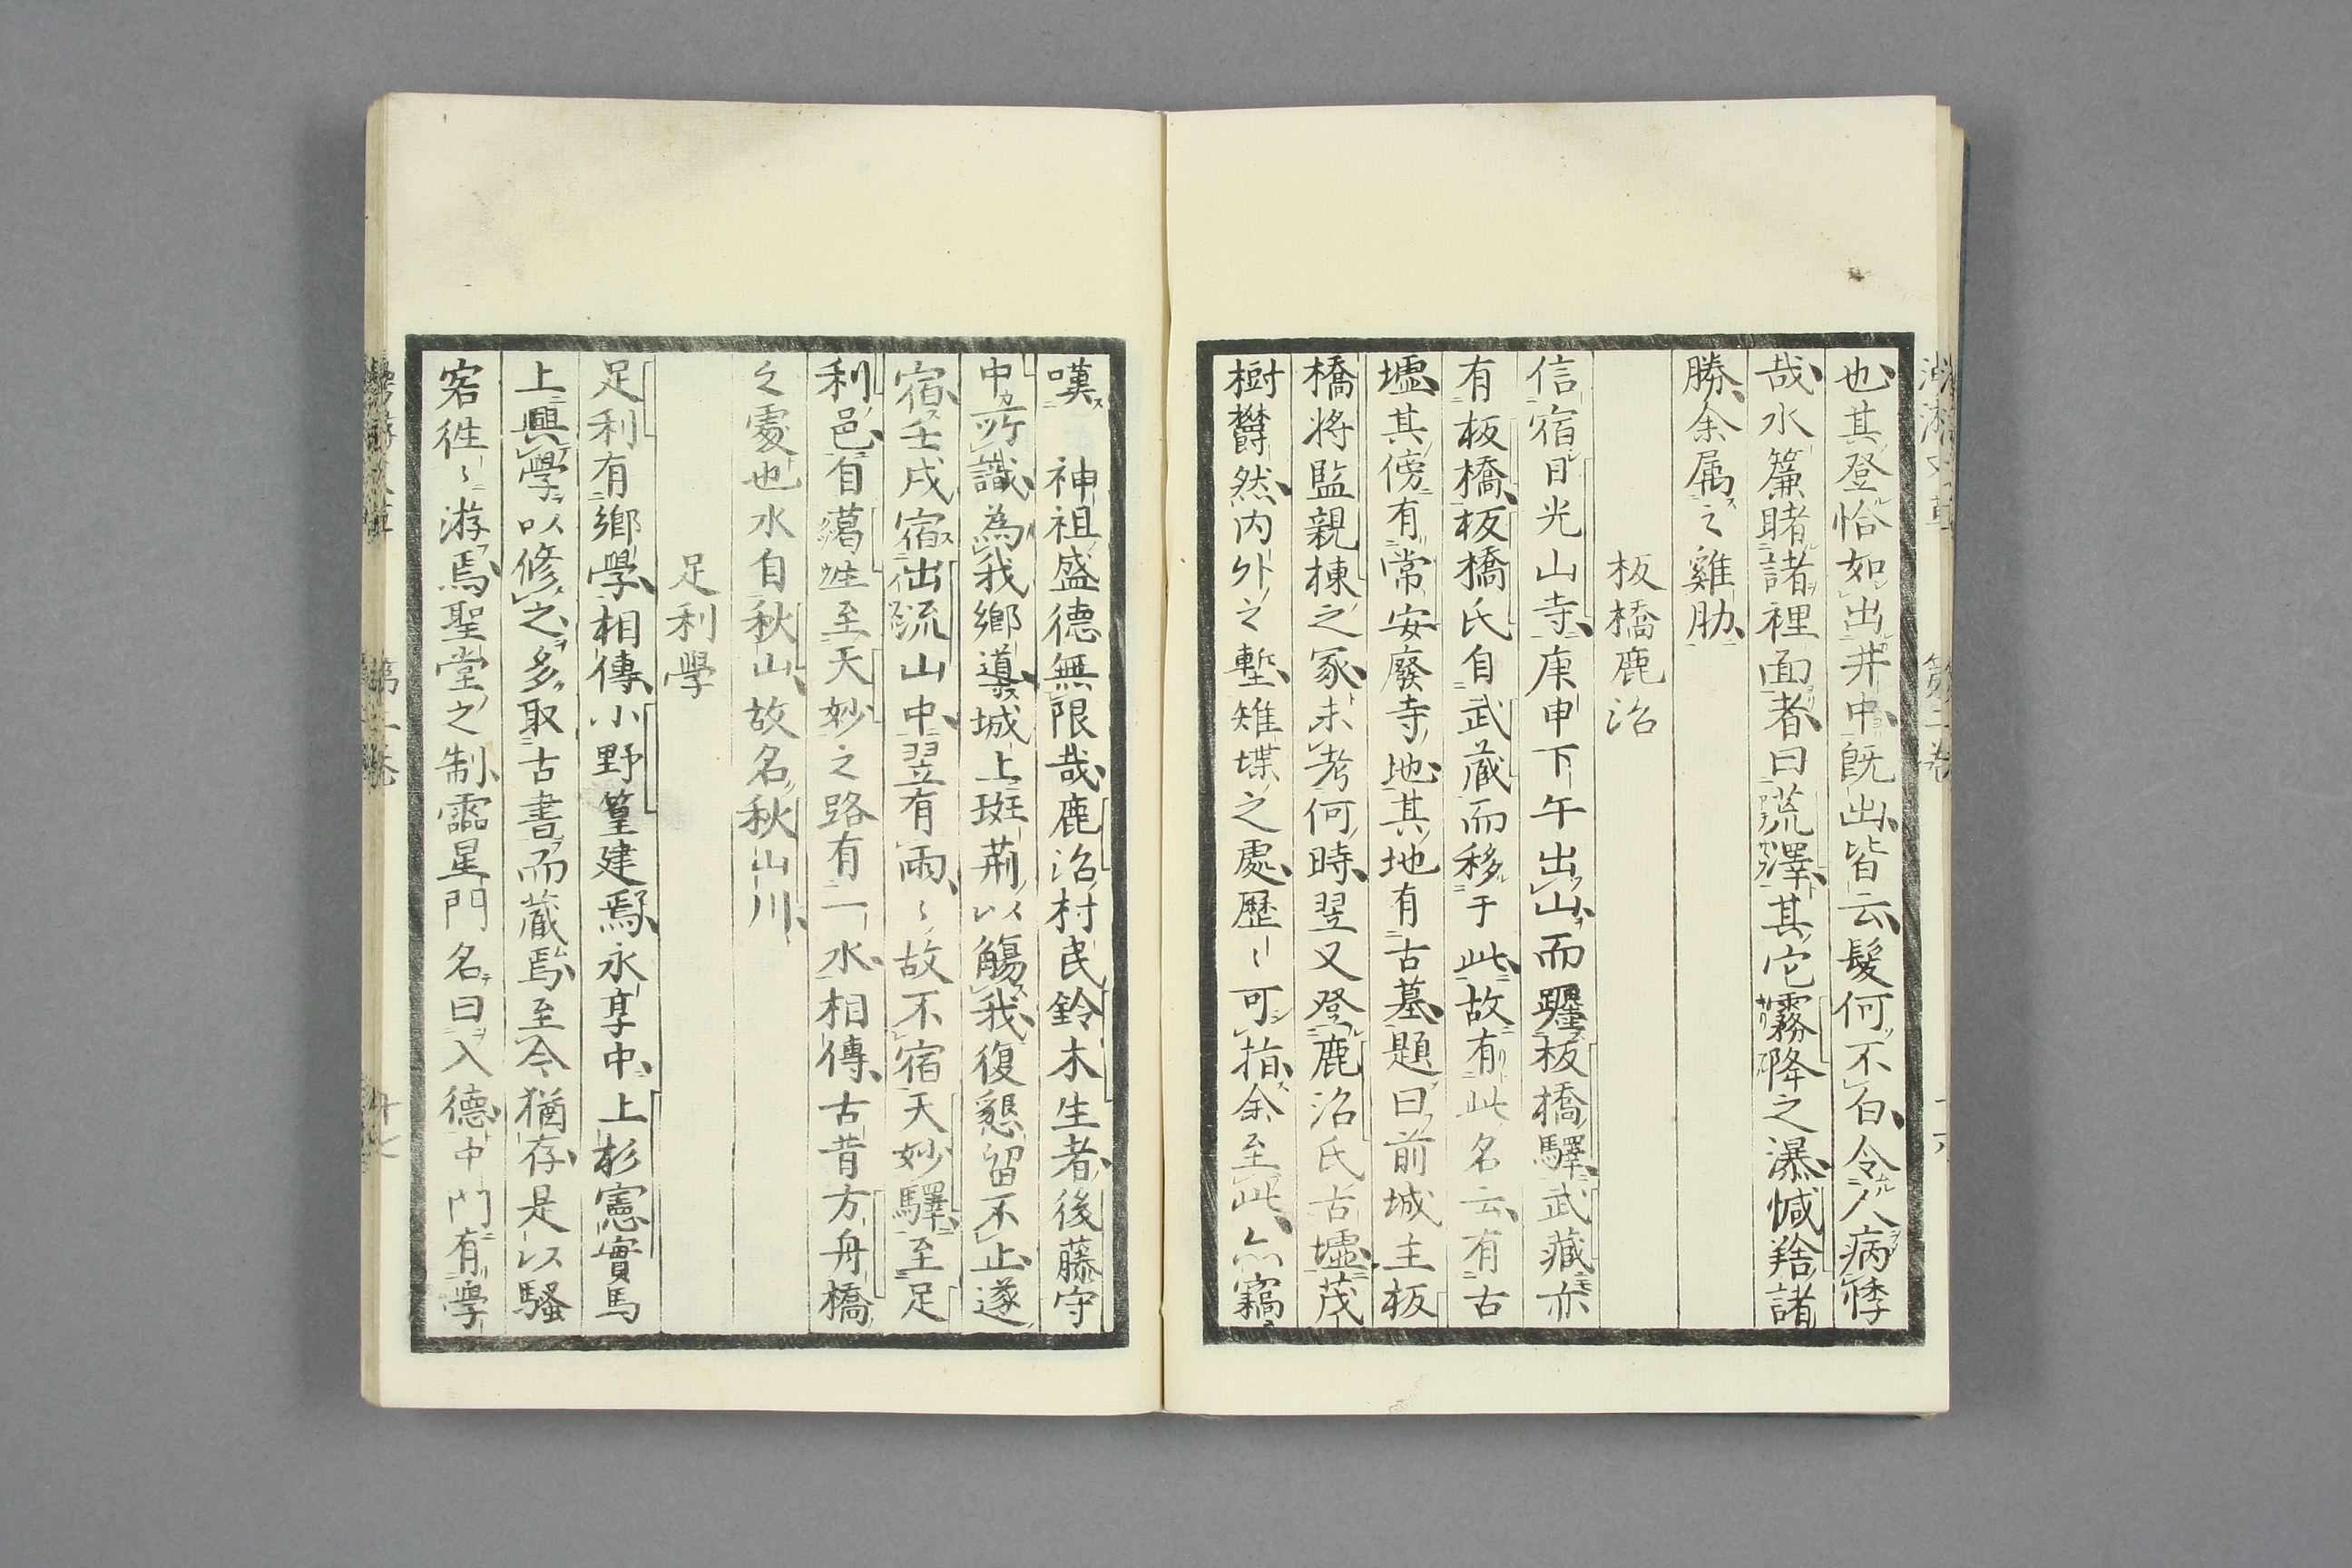 也其登恰如出井中既出皆云髮何不白令人病悸
哉水簾睹諸裡面者曰荒澤其它霧降之瀑憾羚諸
勝余属之雞肋
板橋鹿沼
信宿日光山寺庚申下午出山而躔板橋驛武藏亦
有板橋板橋氏自武蔵而移于此故有此名云有古
墟其傍有常安廢寺地其地有古墓題曰前城主板
橋将監親棟之冢未考何時翌又登鹿沼氏古墟茂
樹欝然内外之塹雉堞之處歷〻可指余至此亦竊
嘆　神祖盛德無限哉鹿沼村民鈴木生者後藤守
中所識為我鄉導城上班荊以觴我復懇留不止遂
宿壬戌宿出流山中翌有雨〻故不宿天妙驛至足
利邑自蘯
至天妙之路有一水相傳古昔方舟橋
之處也水自秋山故名秋山川
足利學
足利有鄉學相傳小野篁建焉永享中上杉憲實馬
上興學以修之多取古書而蔵焉至今猶存是以騷
客徃〻游焉聖堂之制霝星門名曰入德中門有學